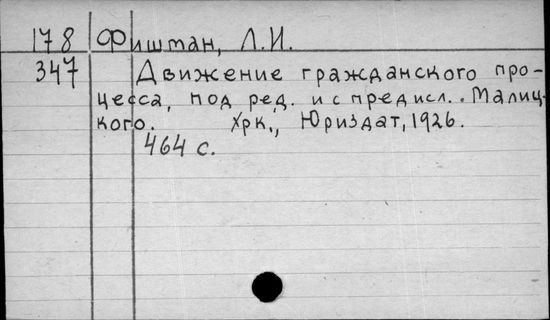 178 Фиштан, Л.И.
347 Движение гражданского про-
цесса, под ред. и с предисл.. Малиц-
кого. Хрк., Юриздат, 1926.
464 с.